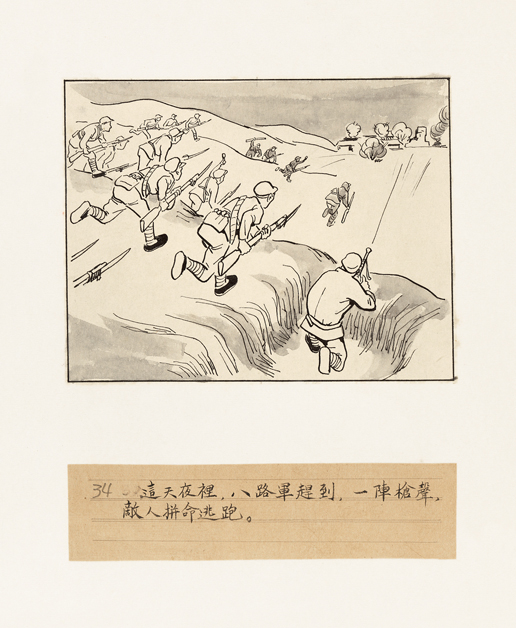 34 這天夜裡，八路軍趕到，一陣槍聲，
敵人拼命逃跑。